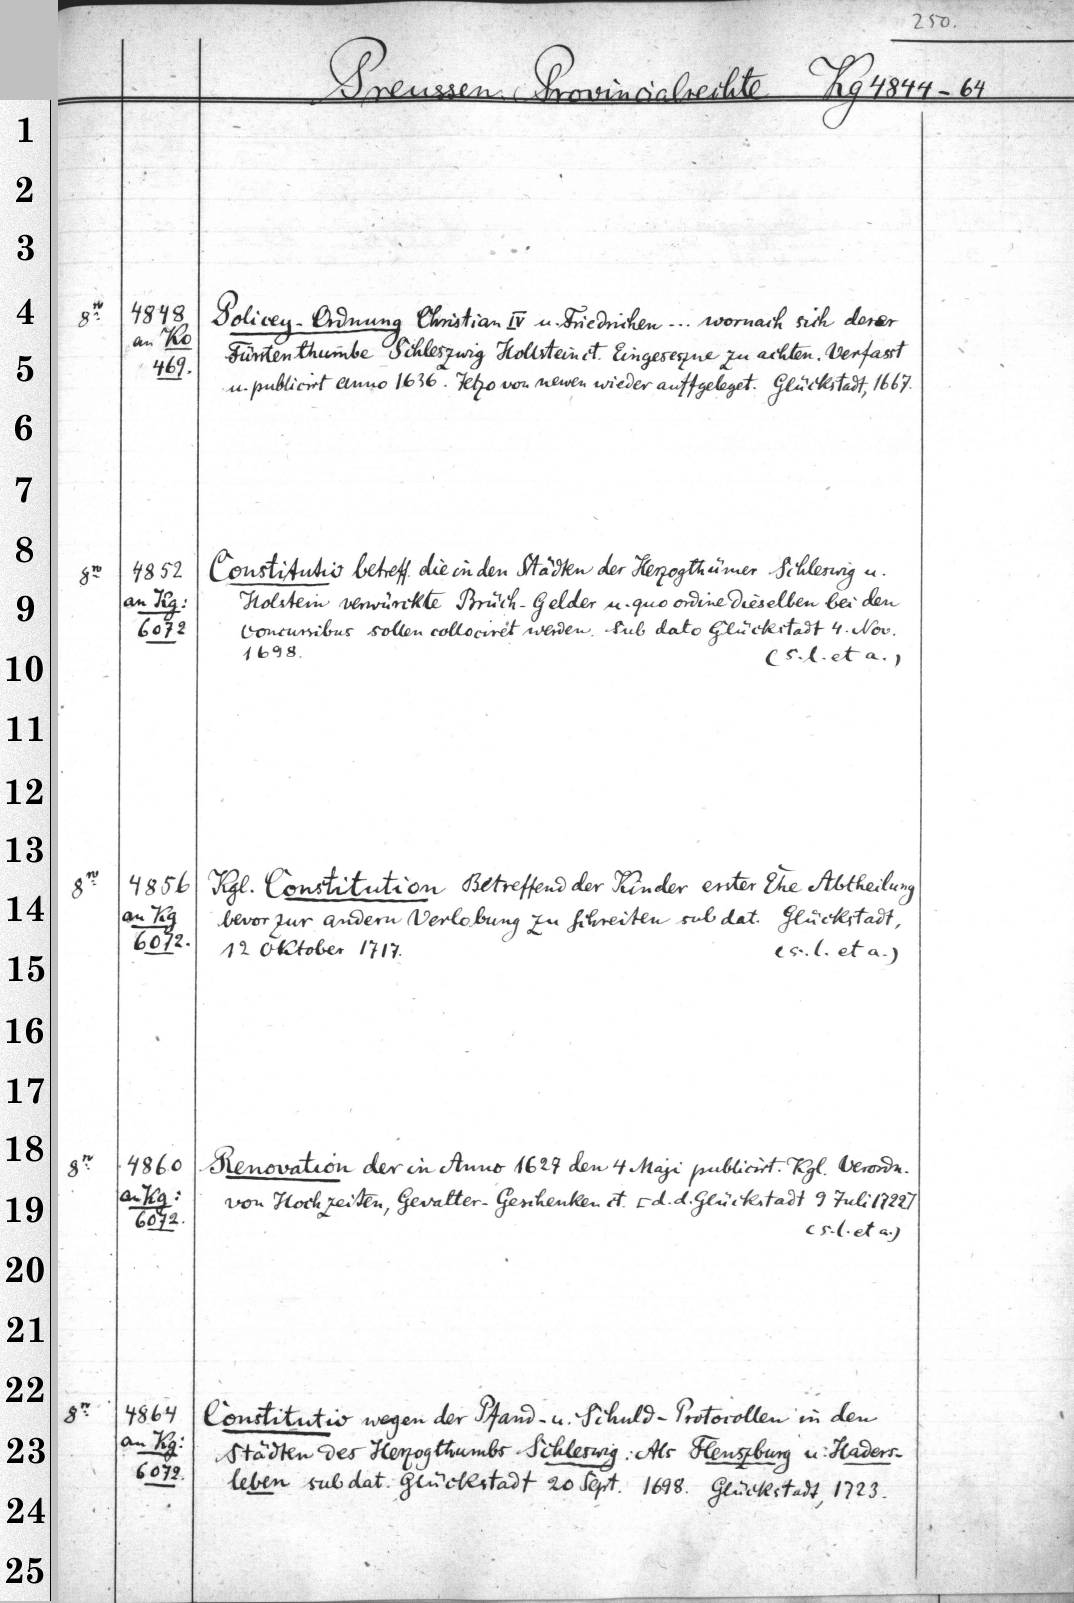 250.
Preussen, Provincialrechte Kg 4844-64
1
2
3
4
5
6
7
8
9
10
11
12
13
14
15
16
17
18
19
20
21
22
23
24
25
8º 4848 Policey-Ordnung Christian IV u. Friedrichen ... wornach sich derer
an Ko Fürstenthumbe Schleszwig Hollstein ct. Eingeseszne zu achten. Verfasst
469. u. publicirt anno 1636. Jetzo von newen wieder auffgeleget. Glückstadt, 1667.
8º 4852 Constitutio betreff. die in den Städten der Herzogthümer Schleswig u.
an Kg: Holstein verwürckte Brüch-Gelder u. quo ordine dieselben bei den
6072 concursibus sollen collociret werden. Sub dato Glückstadt 4. Nov.
1698. (s. l. et a.)
8º 4856 Kgl. Constitution Betreffend der Kinder erster Ehe Abtheilung
an Kg bevor zur andern Verlobung zu schreiten sub dat. Glückstadt,
6072. 12 Oktober 1717. (s. l. et a.)
8º 4860 Renovation der in Anno 1627 den 4 Maji publicirt. Kgl. Verordn.
an Kg: von Hochzeiten, Gevatter-Geschenken ct. [d. d. Glückstadt 9 Juli 1722]
6072. (s. l. et a.)
8º 4864 Constitutio wegen der Pfand- u. Schuld-Protocollen in den
an Kg: Städten des Herzogthumbs Schleswig: Als Flenszburg u: Haders-
6072. leben sub dat. Glückstadt 20 Sept. 1698. Glückstadt, 1723.